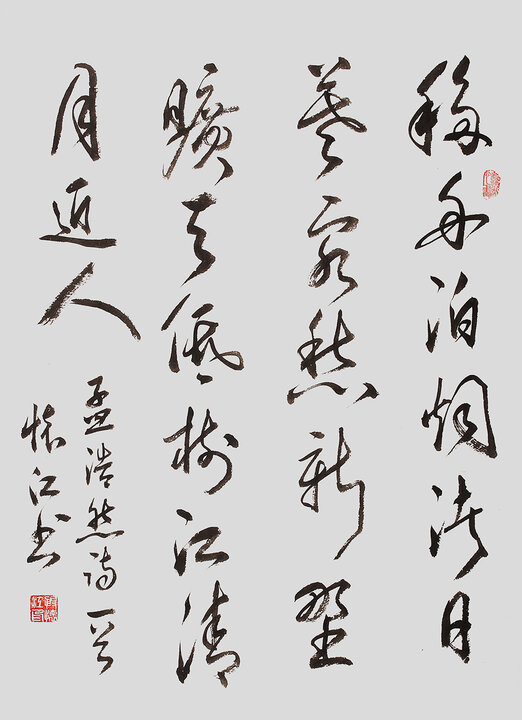 移舟泊烟渚日
暮客愁新野
曠天低樹江清
月近人
孟浩然詩一首
懷江書